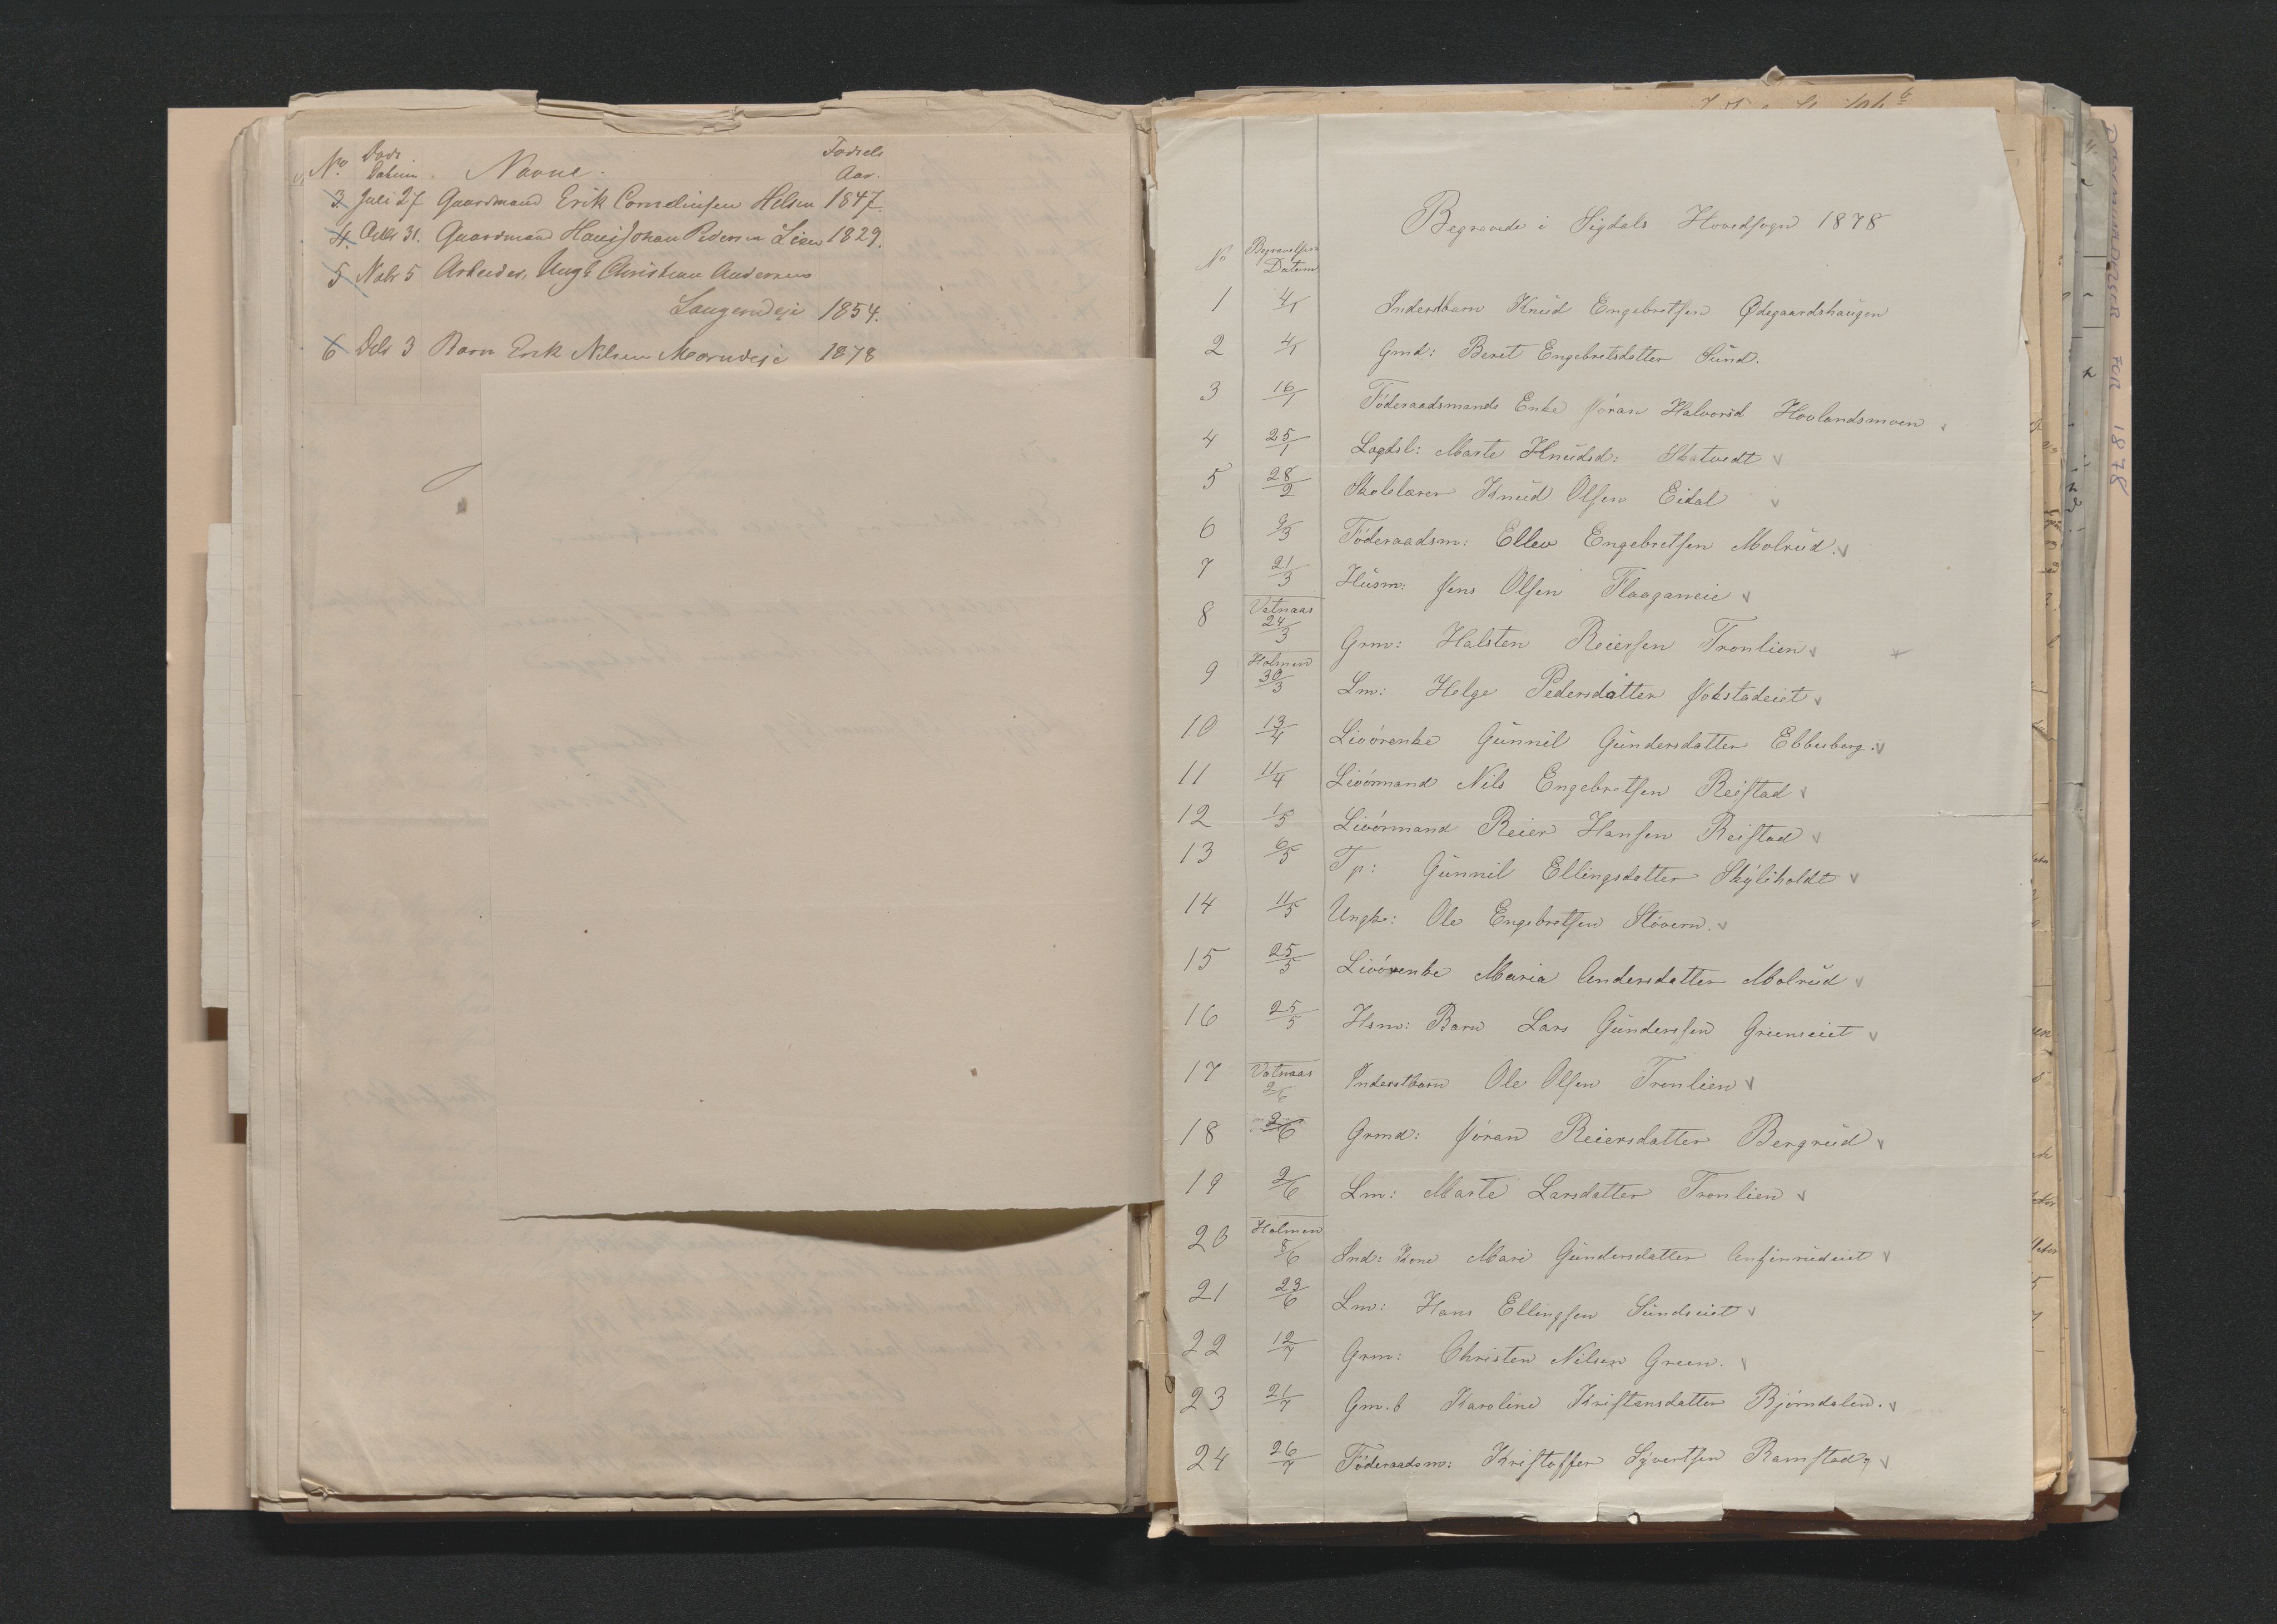 No. Døds Datum. Navne. Fødsels Aar.
3. Juli 27 Gaardmand Erik Corneliusen Helsen 1847.
4. Octbr 31. Gaardmand Hans Johan Pedersen Lien 1829.
5 Nobr 5 Arbeider, Ungk Christian Andersen
1854.
6 Debr 3 Barn Erik Nelsen 1878
Begravede i Sigdals Hovedsogn 1878
No Begravelses Datum
1 4/1 Inderstbarn Knud Engebretsen Ødegaardshaugen
2 4/1 Gmd: Beret Engebretsdatter Sund.
3 16/1 Föderaadsmands Enke Jöran Halvorsd Hovlandsmoen
4 25/1 Lægdsl: Marte Knudsd: Skatvedt
5 28/2 Skolelærer Knud Olsen Eidal
6 9/3 Föderaadsm: Ellev Engebretsen Molrud.
7 21/3 Husm: Jens Olsen Flaaganeie
8 Vatnaas 24/3 Grm: Halsten Reiersen Tronlien
9 Holmen 30/3 Lm: Helge Pedersdatter Jokstadeiet
10 13/4 Livörenke Gunnil Gundersdatter Ebbesberg.
11 11/4 Livörmand Nils Engebretsen Reistad
12 1/5 Livörmand Reier Hansen Reistad
13 6/5 Tp: Gunnil Ellingsdatter
14 11/5 Ungk: Ole Engebretsen Stövern.
15 25/5 Livörenke Maria Andersdatter Molrud
16 25/5 Hsm: Barn Lars Gundersen Greeneiet
17 Vatnaas 2/6 Inderstbarn Ole Olsen Tronlien
18 2/6 Grmd: Jöran Reiersdatter Bergrud
19 2/6 Lm: Marte Larsdatter Tronlien
20 Holmen 8/6 Ind: Kone Mari Gundersdatter Anfinrudeiet
21 23/6 Lm: Hans Ellingsen Sundseiet
22 12/7 Grm: Christen Nilsen Green.
23 21/7 Gm. b Karoline Kristansdatter Bjørndalen.
24 26/7 Föderaadsm: Kristoffer Syvertsen Ramstad
DØDSANMELDELSER FOR 1878